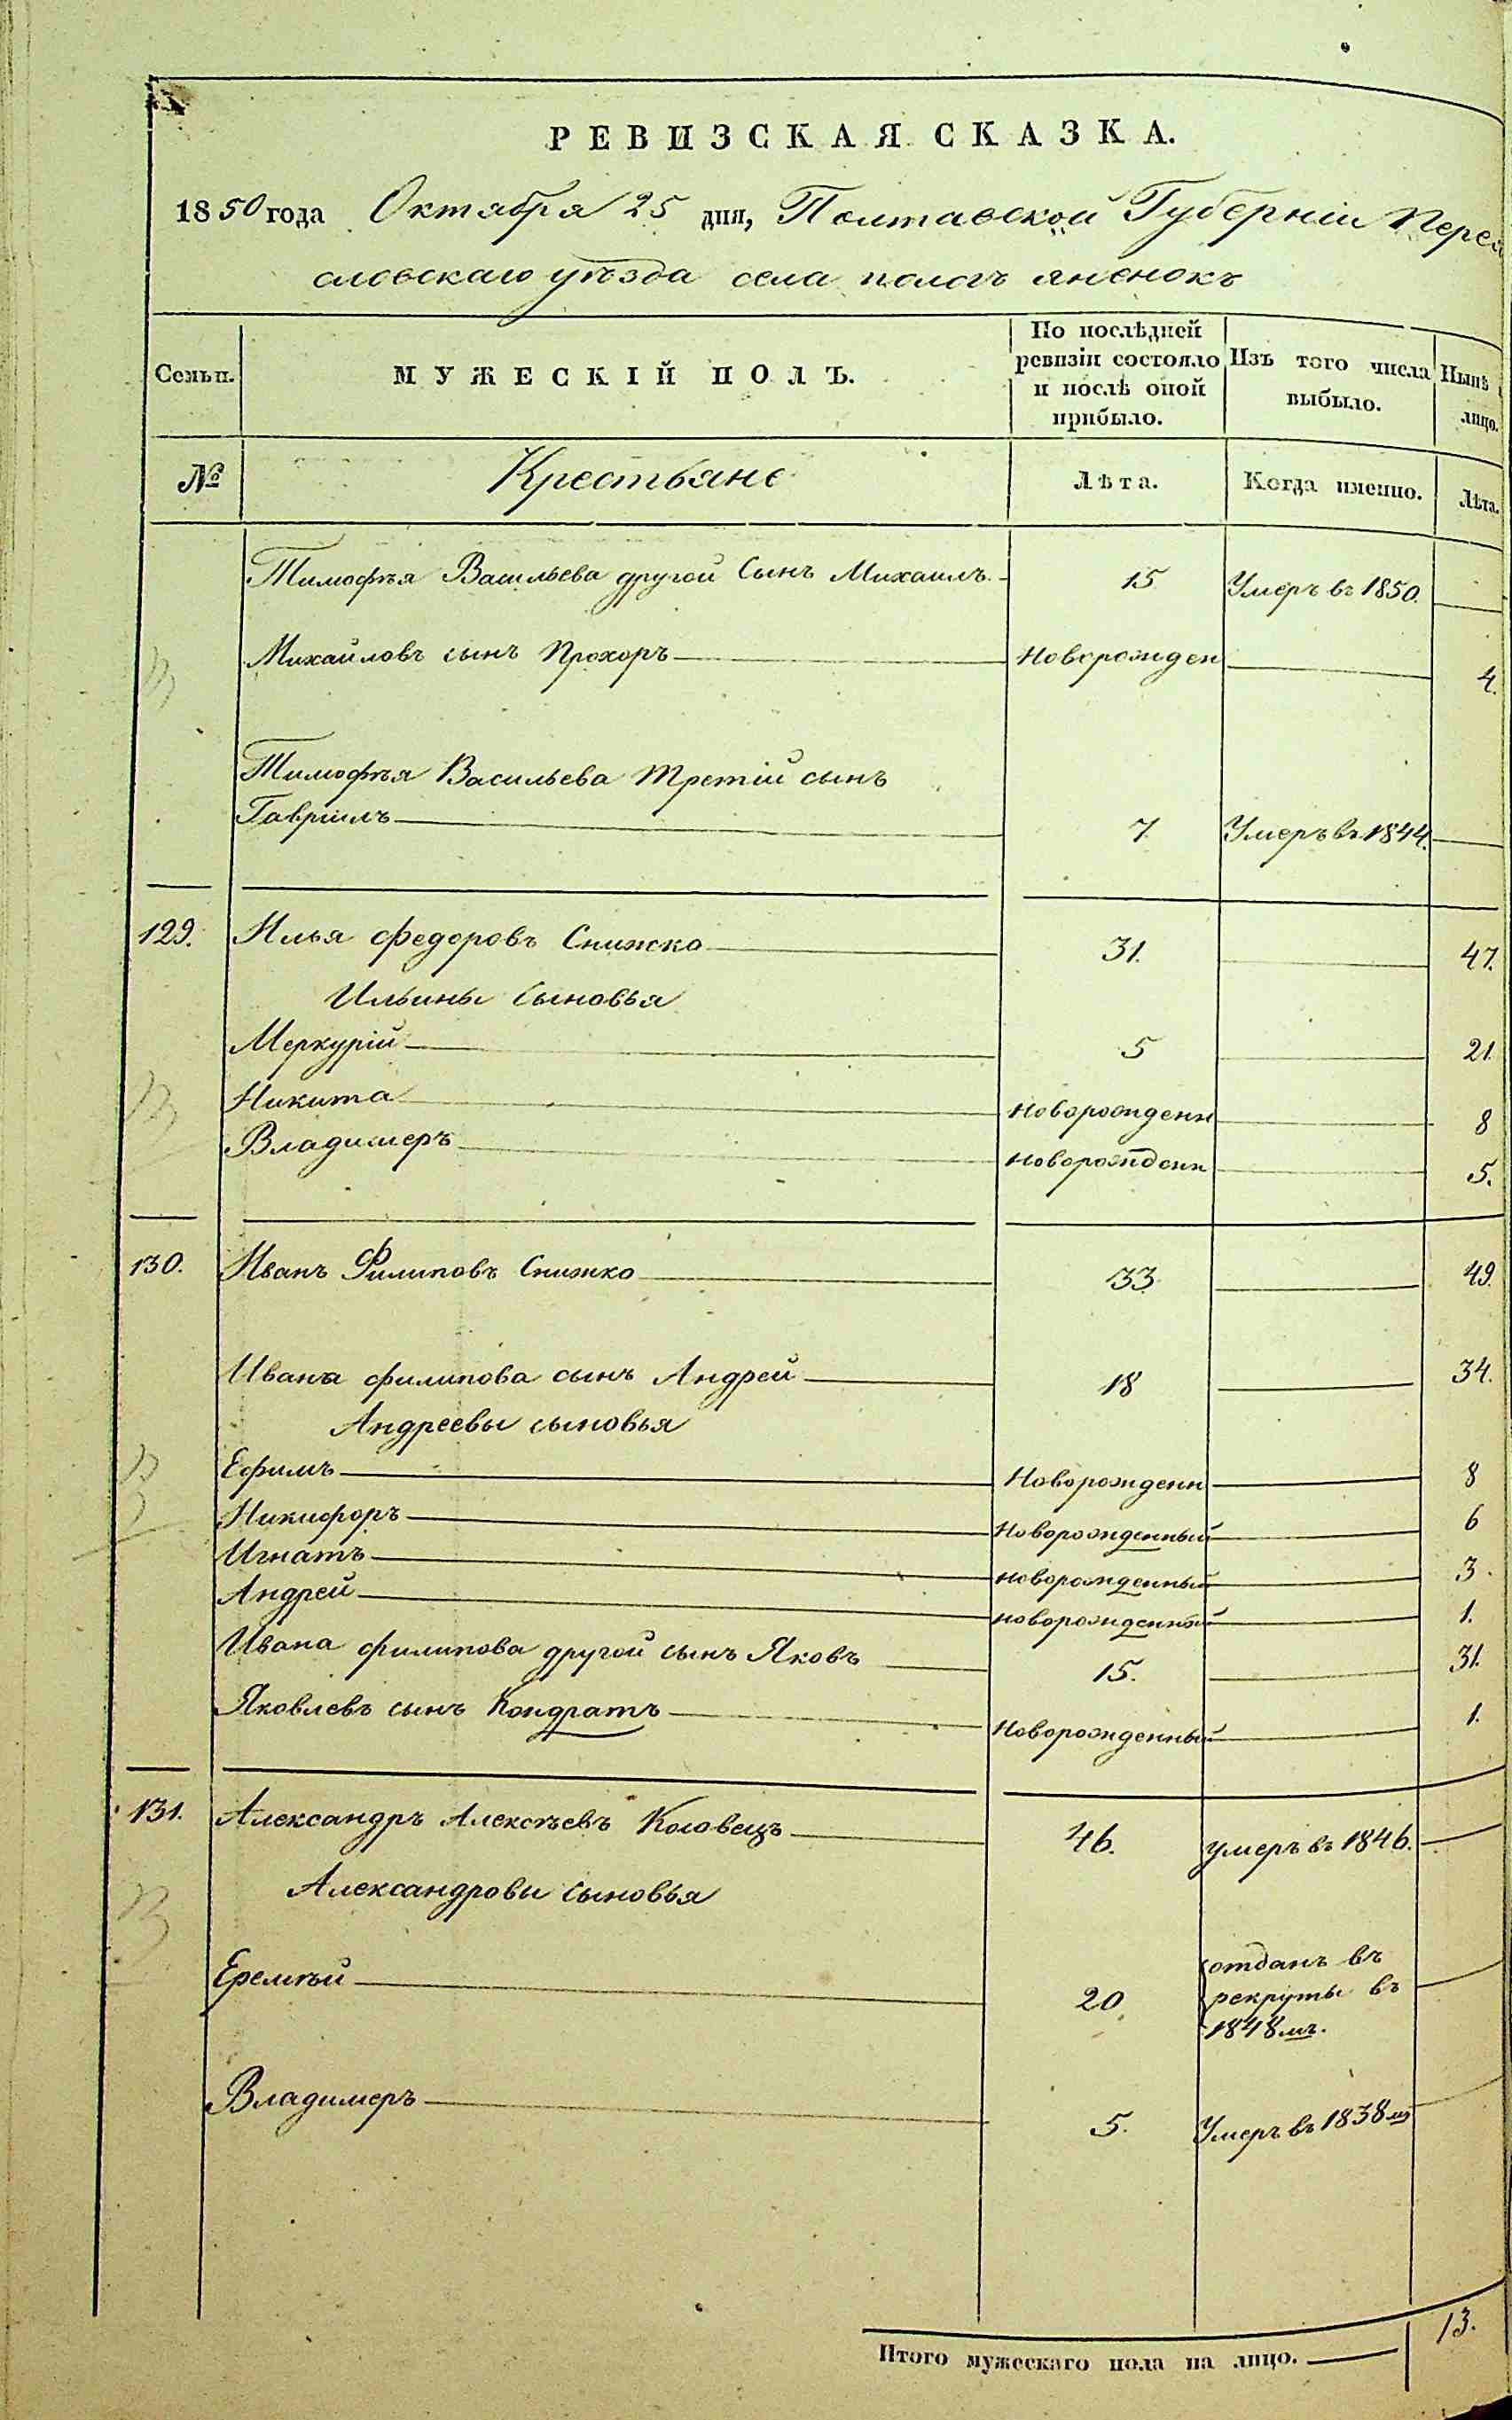 РЕВИЗСКАЯ СКАЗКА.
1850 года Октября 25 дня, Полтавской Губерніи Перея
словскаго уѣзда села пологъ яненокъ
Семьи. МУЖЕСКІЙ ПОЛЪ. По послѣдней ревизіи состояло и послѣ оной прибыло. Изъ того числа выбыло. Нынѣ лицо.
№ Крестьяне Лѣта. Когда именно. Лѣта.
Тимофѣя Васильева другой Сынъ Михаилъ 15 Умеръ въ 1850.
Михайловъ сынъ Прохоръ Новорожден 4.
Тимофѣя Васильева Третій сынъ
Гавріилъ 7 Умеръ въ 1844.
129. Илья Федоровъ Снижко 31. 47.
Ильины Сыновья
Меркурій 5 21
Никита новорожденн 8
Владимеръ новорожденн 5.
130. Иванъ Филиповъ Снижко 33 49.
Ивана филипова сынъ Андрей 18 34.
Андреевы сыновья
Ефимъ Новорожденн 8
Никифоръ Новорожденный 6
Игнатъ новорожденный 3.
Андрей новорожденный 1.
Ивана филипова другой сынъ Яковъ 15. 31.
Яковлевъ сынъ Кондратъ Новорожденный 1.
131. Александръ Алексѣевъ Коловецъ 46. умеръ въ 1846.
Александровы Сыновья
Еремѣй 20 отданъ въ
рекруты въ
1848мъ.
Владимеръ 5. Умеръ въ 1838мъ
Итого мужескаго пола на лицо. 13.